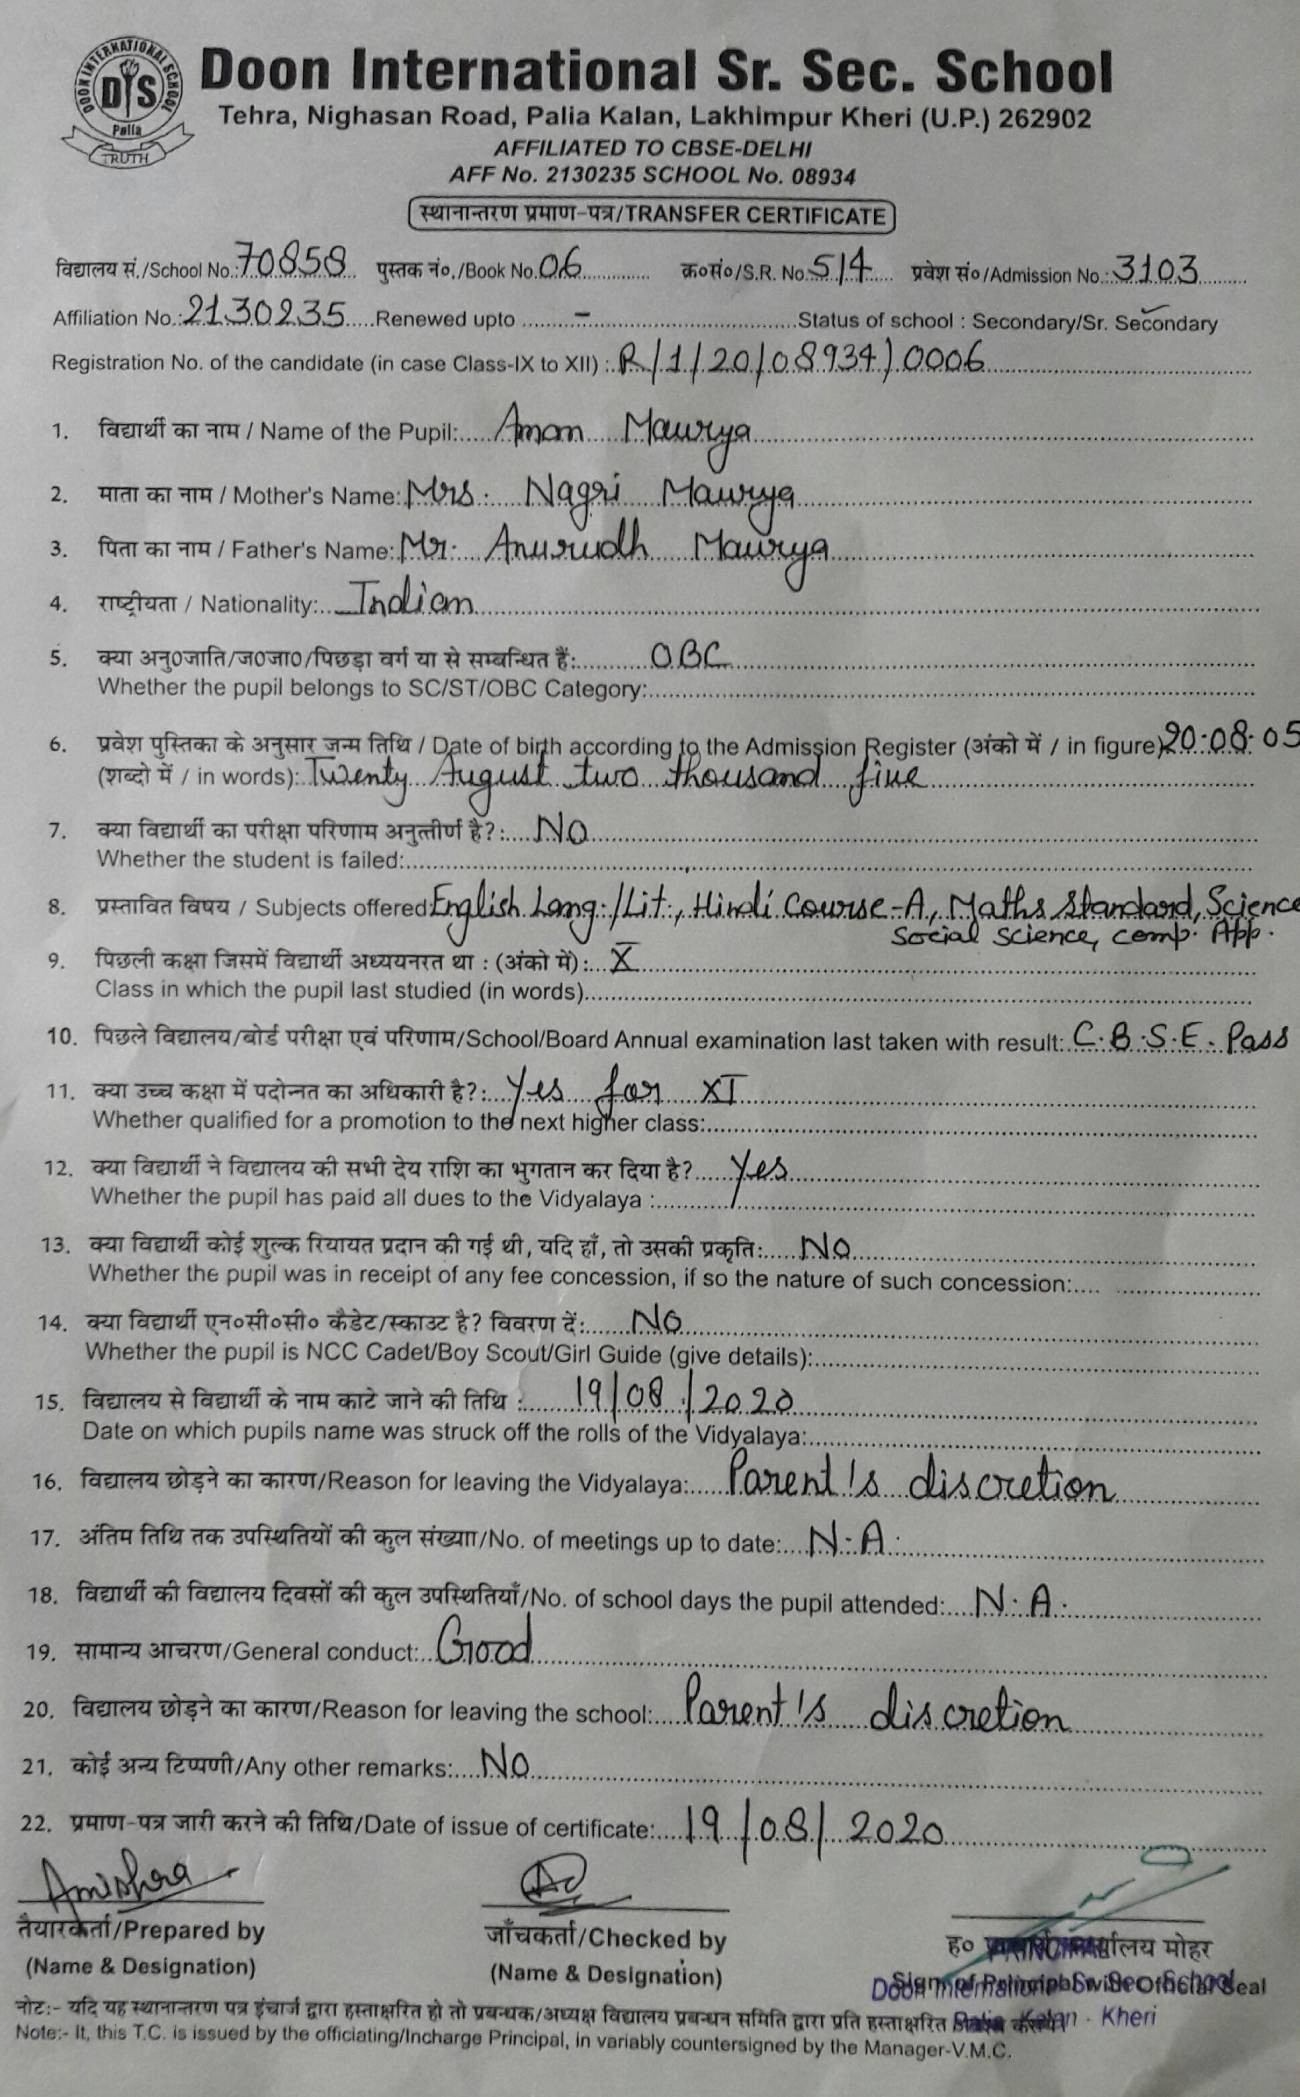 DOON INTERNATIONAL SCHOOL
DIS
Palia
TRUTH
Doon International Sr. Sec. School
Tehra, Nighasan Road, Palia Kalan, Lakhimpur Kheri (U.P.) 262902
AFFILIATED TO CBSE-DELHI
AFF No. 2130235 SCHOOL No. 08934
स्थानान्तरण प्रमाण-पत्र/TRANSFER CERTIFICATE
विद्यालय सं./School No.: 70858 पुस्तक नं०./Book No. 06 क्र०सं०/S.R. No. 514 प्रवेश सं०/Admission No.: 3103
Affiliation No.: 2130235 Renewed upto - Status of school : Secondary/Sr. Secondary
Registration No. of the candidate (in case Class-IX to XII) : R/1/20/08934/0006
1. विद्यार्थी का नाम / Name of the Pupil: Aman Maurya
2. माता का नाम / Mother's Name: Mrs. Nagri Maurya
3. पिता का नाम / Father's Name: Mr. Anurudh Maurya
4. राष्ट्रीयता / Nationality: Indian
5. क्या अनु०जाति/ज०जा०/पिछड़ा वर्ग या से सम्बन्धित हैं: OBC
Whether the pupil belongs to SC/ST/OBC Category:
6. प्रवेश पुस्तिका के अनुसार जन्म तिथि / Date of birth according to the Admission Register (अंको में / in figure) 20.08.05
(शब्दो में / in words): Twenty August two thousand five
7. क्या विद्यार्थी का परीक्षा परिणाम अनुत्तीर्ण है?: No
Whether the student is failed:
8. प्रस्तावित विषय / Subjects offered: English Lang./Lit., Hindi Course-A, Maths Standard, Science
Social Science, Comp. App.
9. पिछली कक्षा जिसमें विद्यार्थी अध्ययनरत था : (अंको में): X
Class in which the pupil last studied (in words)
10. पिछले विद्यालय/बोर्ड परीक्षा एवं परिणाम/School/Board Annual examination last taken with result: C.B.S.E. Pass
11. क्या उच्च कक्षा में पदोन्नत का अधिकारी है?: Yes for XI
Whether qualified for a promotion to the next higher class:
12. क्या विद्यार्थी ने विद्यालय की सभी देय राशि का भुगतान कर दिया है? Yes
Whether the pupil has paid all dues to the Vidyalaya :
13. क्या विद्यार्थी कोई शुल्क रियायत प्रदान की गई थी, यदि हाँ, तो उसकी प्रकृति: No
Whether the pupil was in receipt of any fee concession, if so the nature of such concession:
14. क्या विद्यार्थी एन०सी०सी० कैडेट/स्काउट है? विवरण दें: No
Whether the pupil is NCC Cadet/Boy Scout/Girl Guide (give details):
15. विद्यालय से विद्यार्थी के नाम काटे जाने की तिथि : 19/08/2020
Date on which pupils name was struck off the rolls of the Vidyalaya:
16. विद्यालय छोड़ने का कारण/Reason for leaving the Vidyalaya: Parent's discretion
17. अंतिम तिथि तक उपस्थितियों की कुल संख्या/No. of meetings up to date: N.A.
18. विद्यार्थी की विद्यालय दिवसों की कुल उपस्थितियाँ/No. of school days the pupil attended: N.A.
19. सामान्य आचरण/General conduct: Good
20. विद्यालय छोड़ने का कारण/Reason for leaving the school: Parent's discretion
21. कोई अन्य टिप्पणी/Any other remarks: No
22. प्रमाण-पत्र जारी करने की तिथि/Date of issue of certificate: 19/08/2020
Amishra
तैयारकर्ता/Prepared by जाँचकर्ता/Checked by ह० मोहर
(Name & Designation) (Name & Designation) Sign. of Principal with Official Seal
PRINCIPAL
Doon International Sr. Sec. School
Palia Kalan - Kheri
नोट:- यदि यह स्थानान्तरण पत्र इंचार्ज द्वारा हस्ताक्षरित हो तो प्रबन्धक/अध्यक्ष विद्यालय प्रबन्धन समिति द्वारा प्रति हस्ताक्षरित
Note:- It, this T.C. is issued by the officiating/Incharge Principal, in variably countersigned by the Manager-V.M.C.